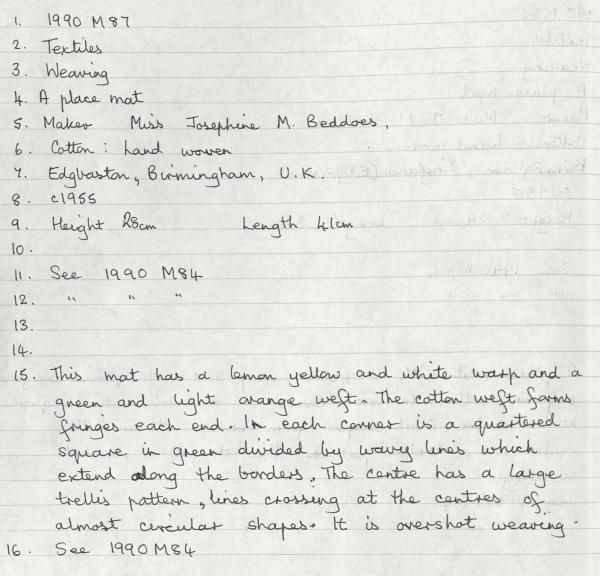 1. 1990 M87
2. Textiles
3. Weaving
4. A place mat
5. Maker Miss Josephine M. Beddoes,
6. Cotton: hand woven
7. Edgbaston, Birmingham, U.K.
8. c1955
9. Height 28cm Length 41cm
10.
11. See 1990 M84
12. " " "
13.
14.
15. This mat has a lemon yellow and white warp and a
green and light orange weft. The cotton weft forms
fringes each end. In each corner is a quartered
square in green divided by wavy lines which
extend along the borders. The centre has a large
trellis pattern, lines crossing at the centres of
almost circular shapes. It is overshot weaving.
16. See 1990 M84